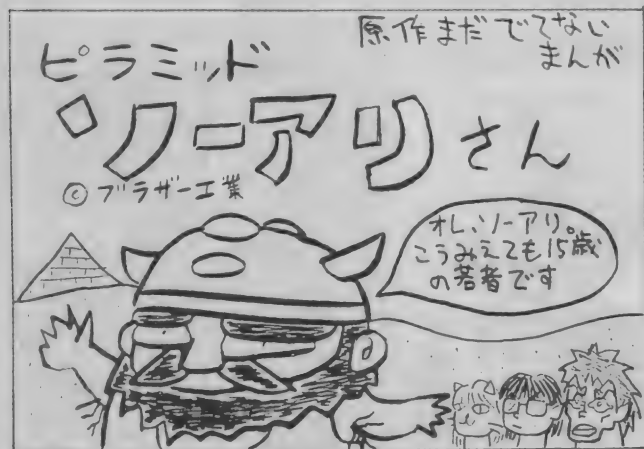 原作まだでてない
まんが
ピラミッド
ソーアリさん
©ブラザー工業
オレ、ソーアリ。
こうみえても15歳
の若者です